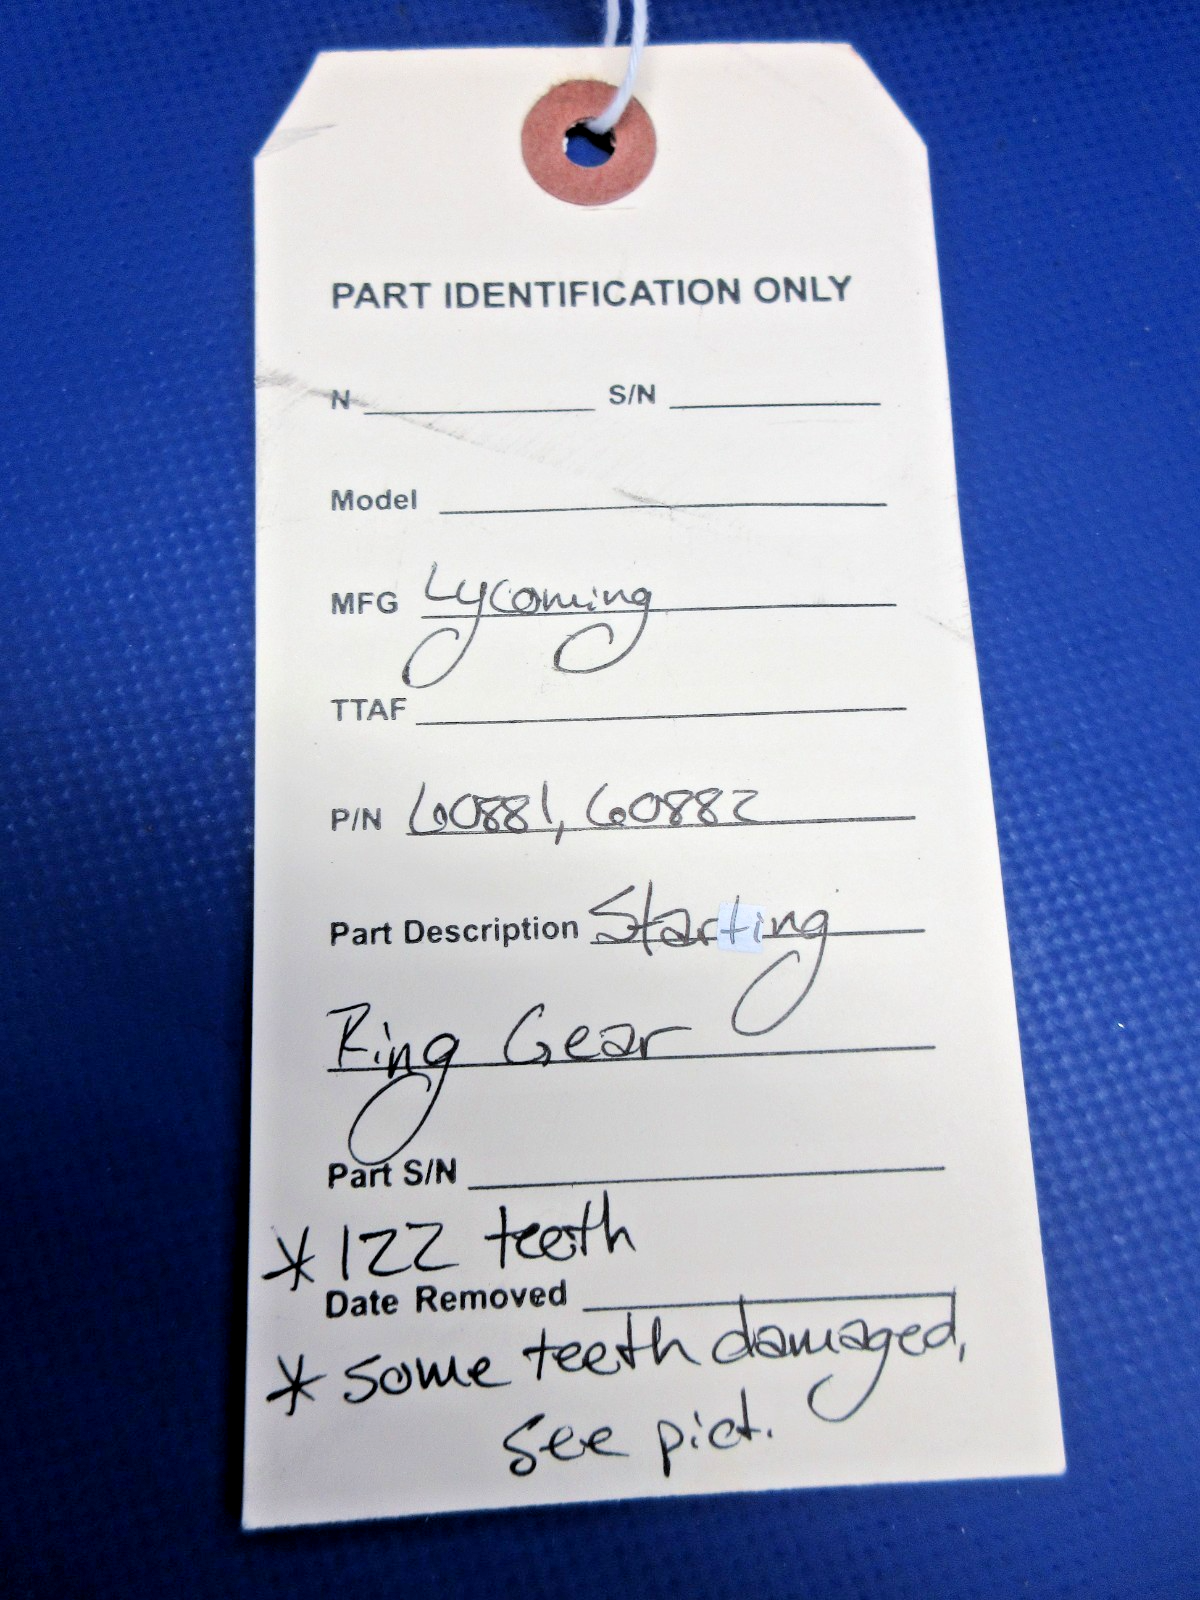 PART IDENTIFICATION ONLY
N S/N
Model
MFG Lycoming
TTAF
P/N 60881, 60882
Part Description Starting
Ring Gear
Part S/N
* 122 teeth
Date Removed
* some teeth damaged,
see pict.